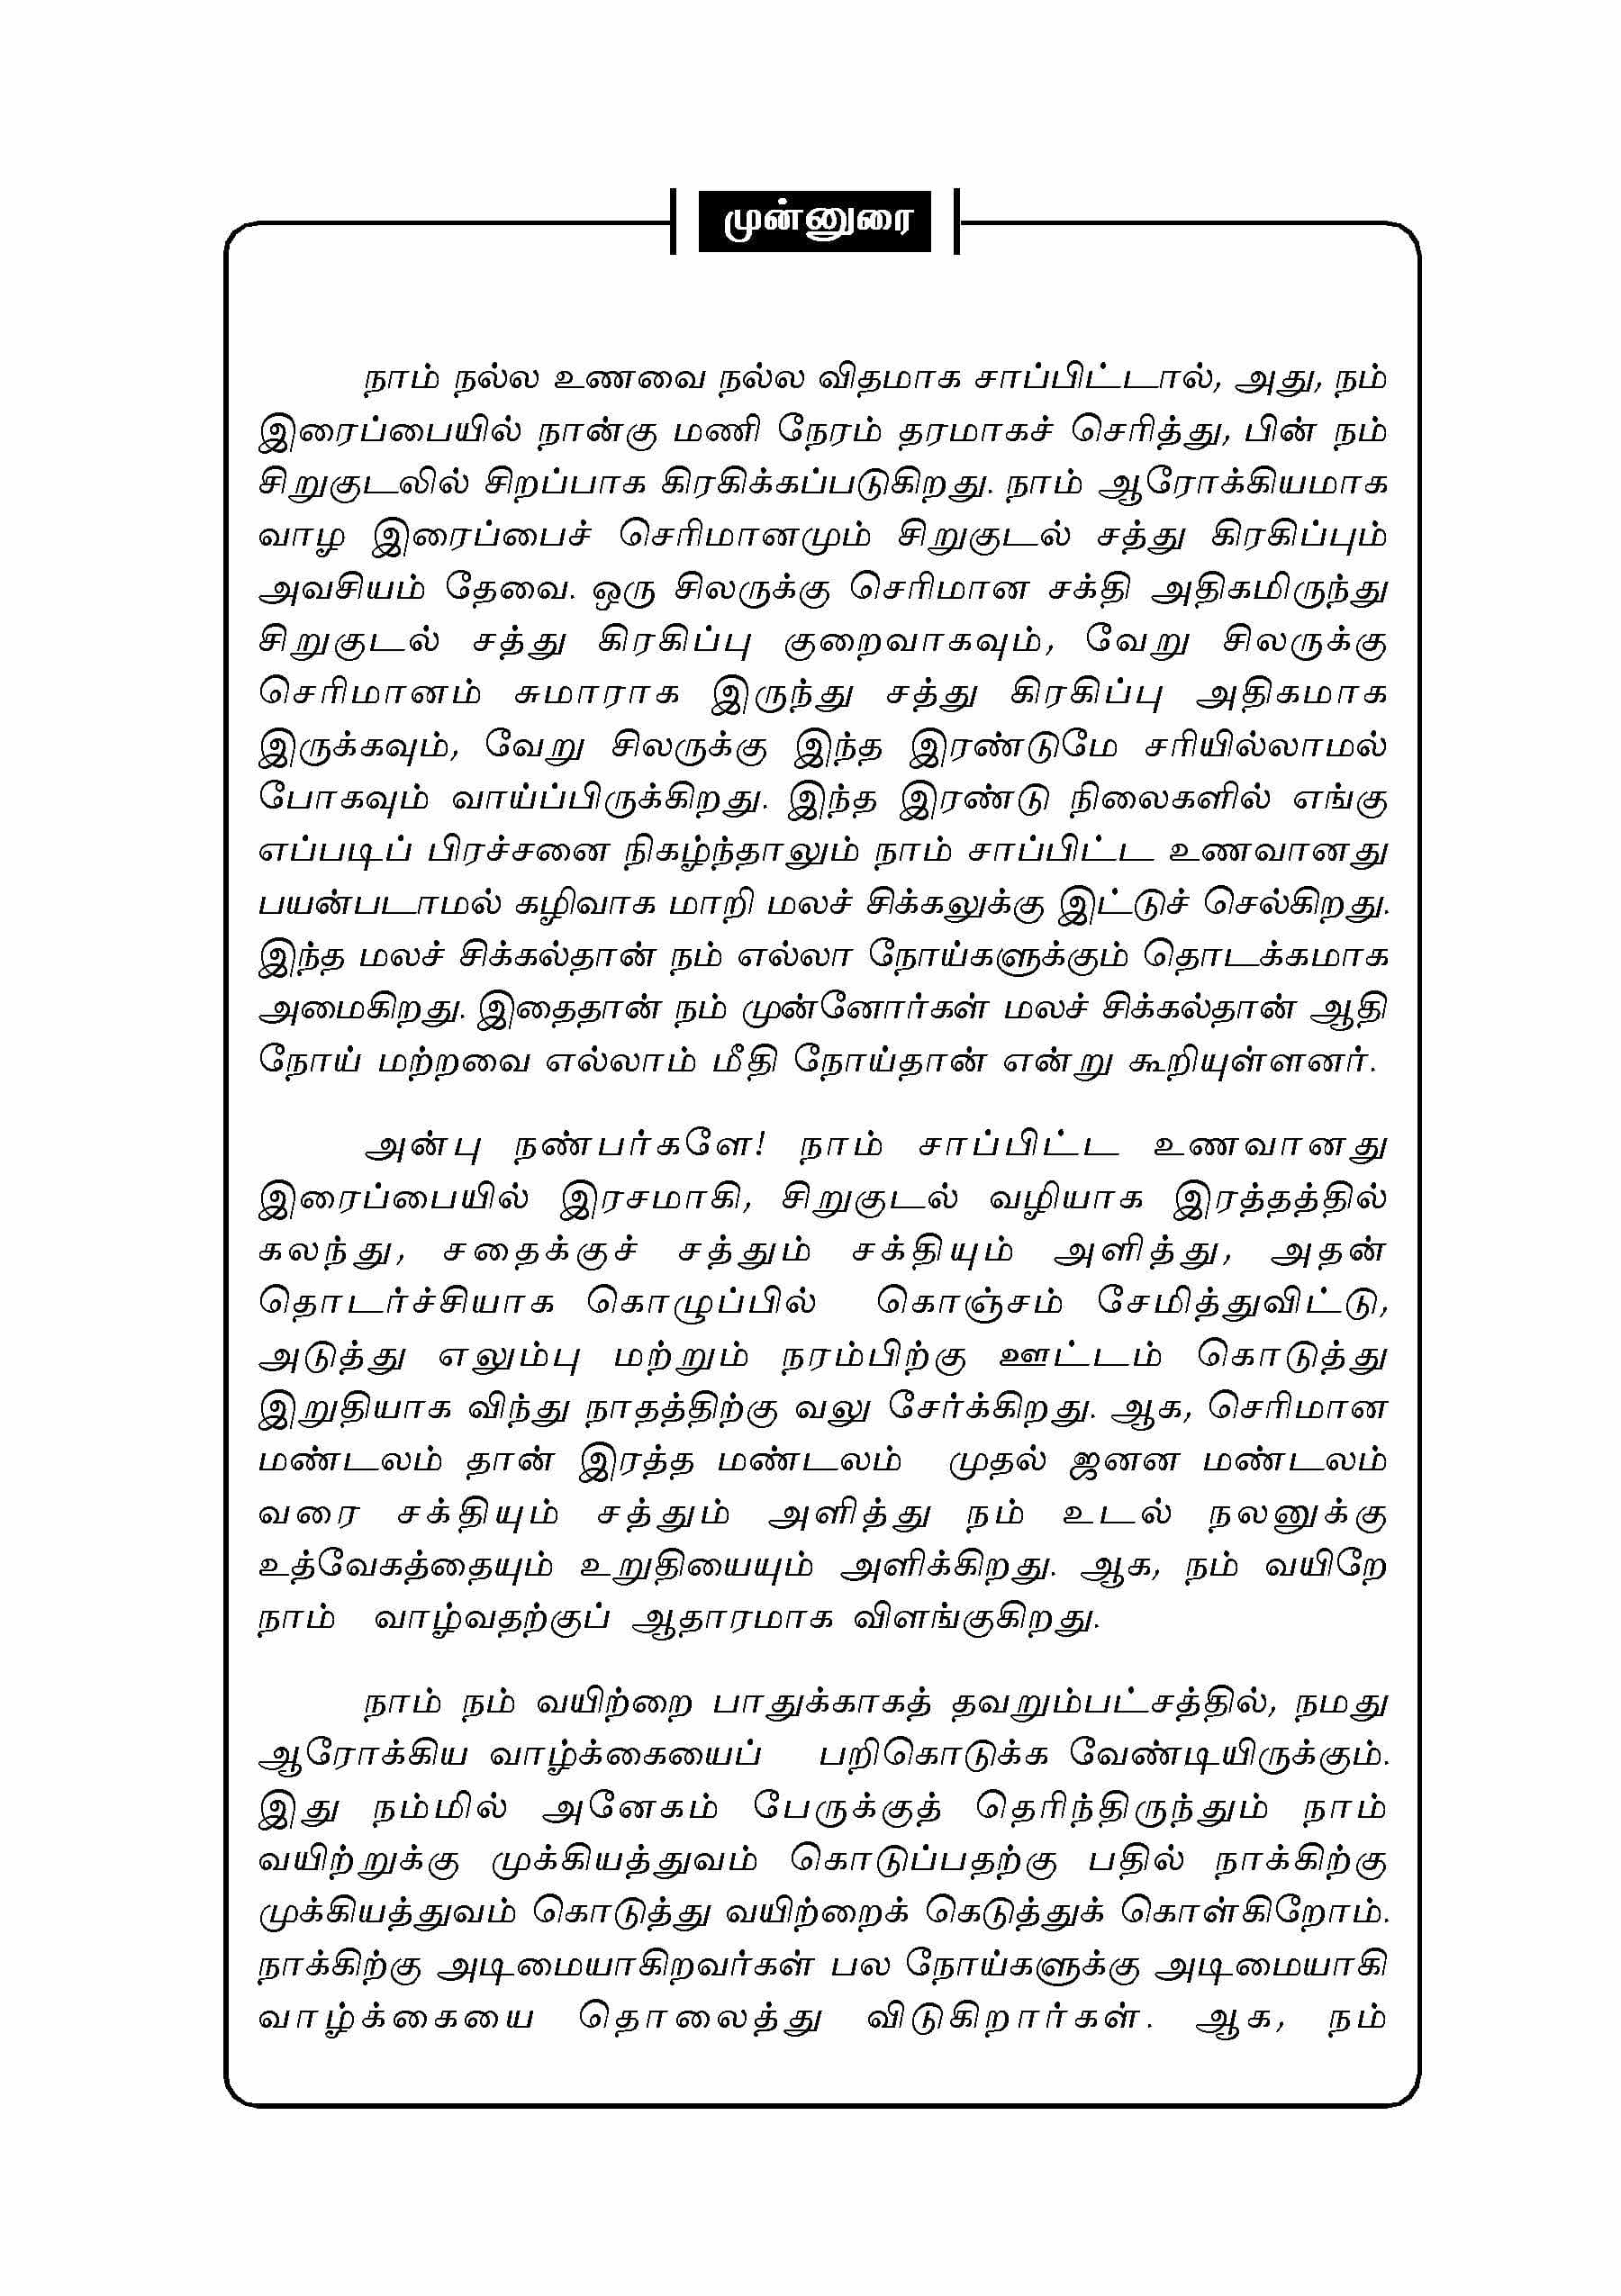 முன்னுரை
நாம் நல்ல உணவை நல்ல விதமாக சாப்பிட்டால், அது, நம்
இரைப்பையில் நான்கு மணி நேரம் தரமாகச் செரித்து, பின் நம்
சிறுகுடலில் சிறப்பாக கிரகிக்கப்படுகிறது. நாம் ஆரோக்கியமாக
வாழ இரைப்பைச் செரிமானமும் சிறுகுடல் சத்து கிரகிப்பும்
அவசியம் தேவை. ஒரு சிலருக்கு செரிமான சக்தி அதிகமிருந்து
சிறுகுடல் சத்து கிரகிப்பு குறைவாகவும், வேறு சிலருக்கு
செரிமானம் சுமாராக இருந்து சத்து கிரகிப்பு அதிகமாக
இருக்கவும், வேறு சிலருக்கு இந்த இரண்டுமே சரியில்லாமல்
போகவும் வாய்ப்பிருக்கிறது. இந்த இரண்டு நிலைகளில் எங்கு
எப்படிப் பிரச்சனை நிகழ்ந்தாலும் நாம் சாப்பிட்ட உணவானது
பயன்படாமல் கழிவாக மாறி மலச் சிக்கலுக்கு இட்டுச் செல்கிறது.
இந்த மலச் சிக்கல்தான் நம் எல்லா நோய்களுக்கும் தொடக்கமாக
அமைகிறது. இதைதான் நம் முன்னோர்கள் மலச் சிக்கல்தான் ஆதி
நோய் மற்றவை எல்லாம் மீதி நோய்தான் என்று கூறியுள்ளனர்.
அன்பு நண்பர்களே! நாம் சாப்பிட்ட உணவானது
இரைப்பையில் இரசமாகி, சிறுகுடல் வழியாக இரத்தத்தில்
கலந்து, சதைக்குச் சத்தும் சக்தியும் அளித்து, அதன்
தொடர்ச்சியாக கொழுப்பில் கொஞ்சம் சேமித்துவிட்டு,
அடுத்து எலும்பு மற்றும் நரம்பிற்கு ஊட்டம் கொடுத்து
இறுதியாக விந்து நாதத்திற்கு வலு சேர்க்கிறது. ஆக, செரிமான
மண்டலம் தான் இரத்த மண்டலம் முதல் ஜனன மண்டலம்
வரை சக்தியும் சத்தும் அளித்து நம் உடல் நலனுக்கு
உத்வேகத்தையும் உறுதியையும் அளிக்கிறது. ஆக, நம் வயிறே
நாம் வாழ்வதற்குப் ஆதாரமாக விளங்குகிறது.
நாம் நம் வயிற்றை பாதுக்காகத் தவறும்பட்சத்தில், நமது
ஆரோக்கிய வாழ்க்கையைப் பறிகொடுக்க வேண்டியிருக்கும்.
இது நம்மில் அனேகம் பேருக்குத் தெரிந்திருந்தும் நாம்
வயிற்றுக்கு முக்கியத்துவம் கொடுப்பதற்கு பதில் நாக்கிற்கு
முக்கியத்துவம் கொடுத்து வயிற்றைக் கெடுத்துக் கொள்கிறோம்.
நாக்கிற்கு அடிமையாகிறவர்கள் பல நோய்களுக்கு அடிமையாகி
வாழ்க்கையை தொலைத்து விடுகிறார்கள். ஆக, நம்